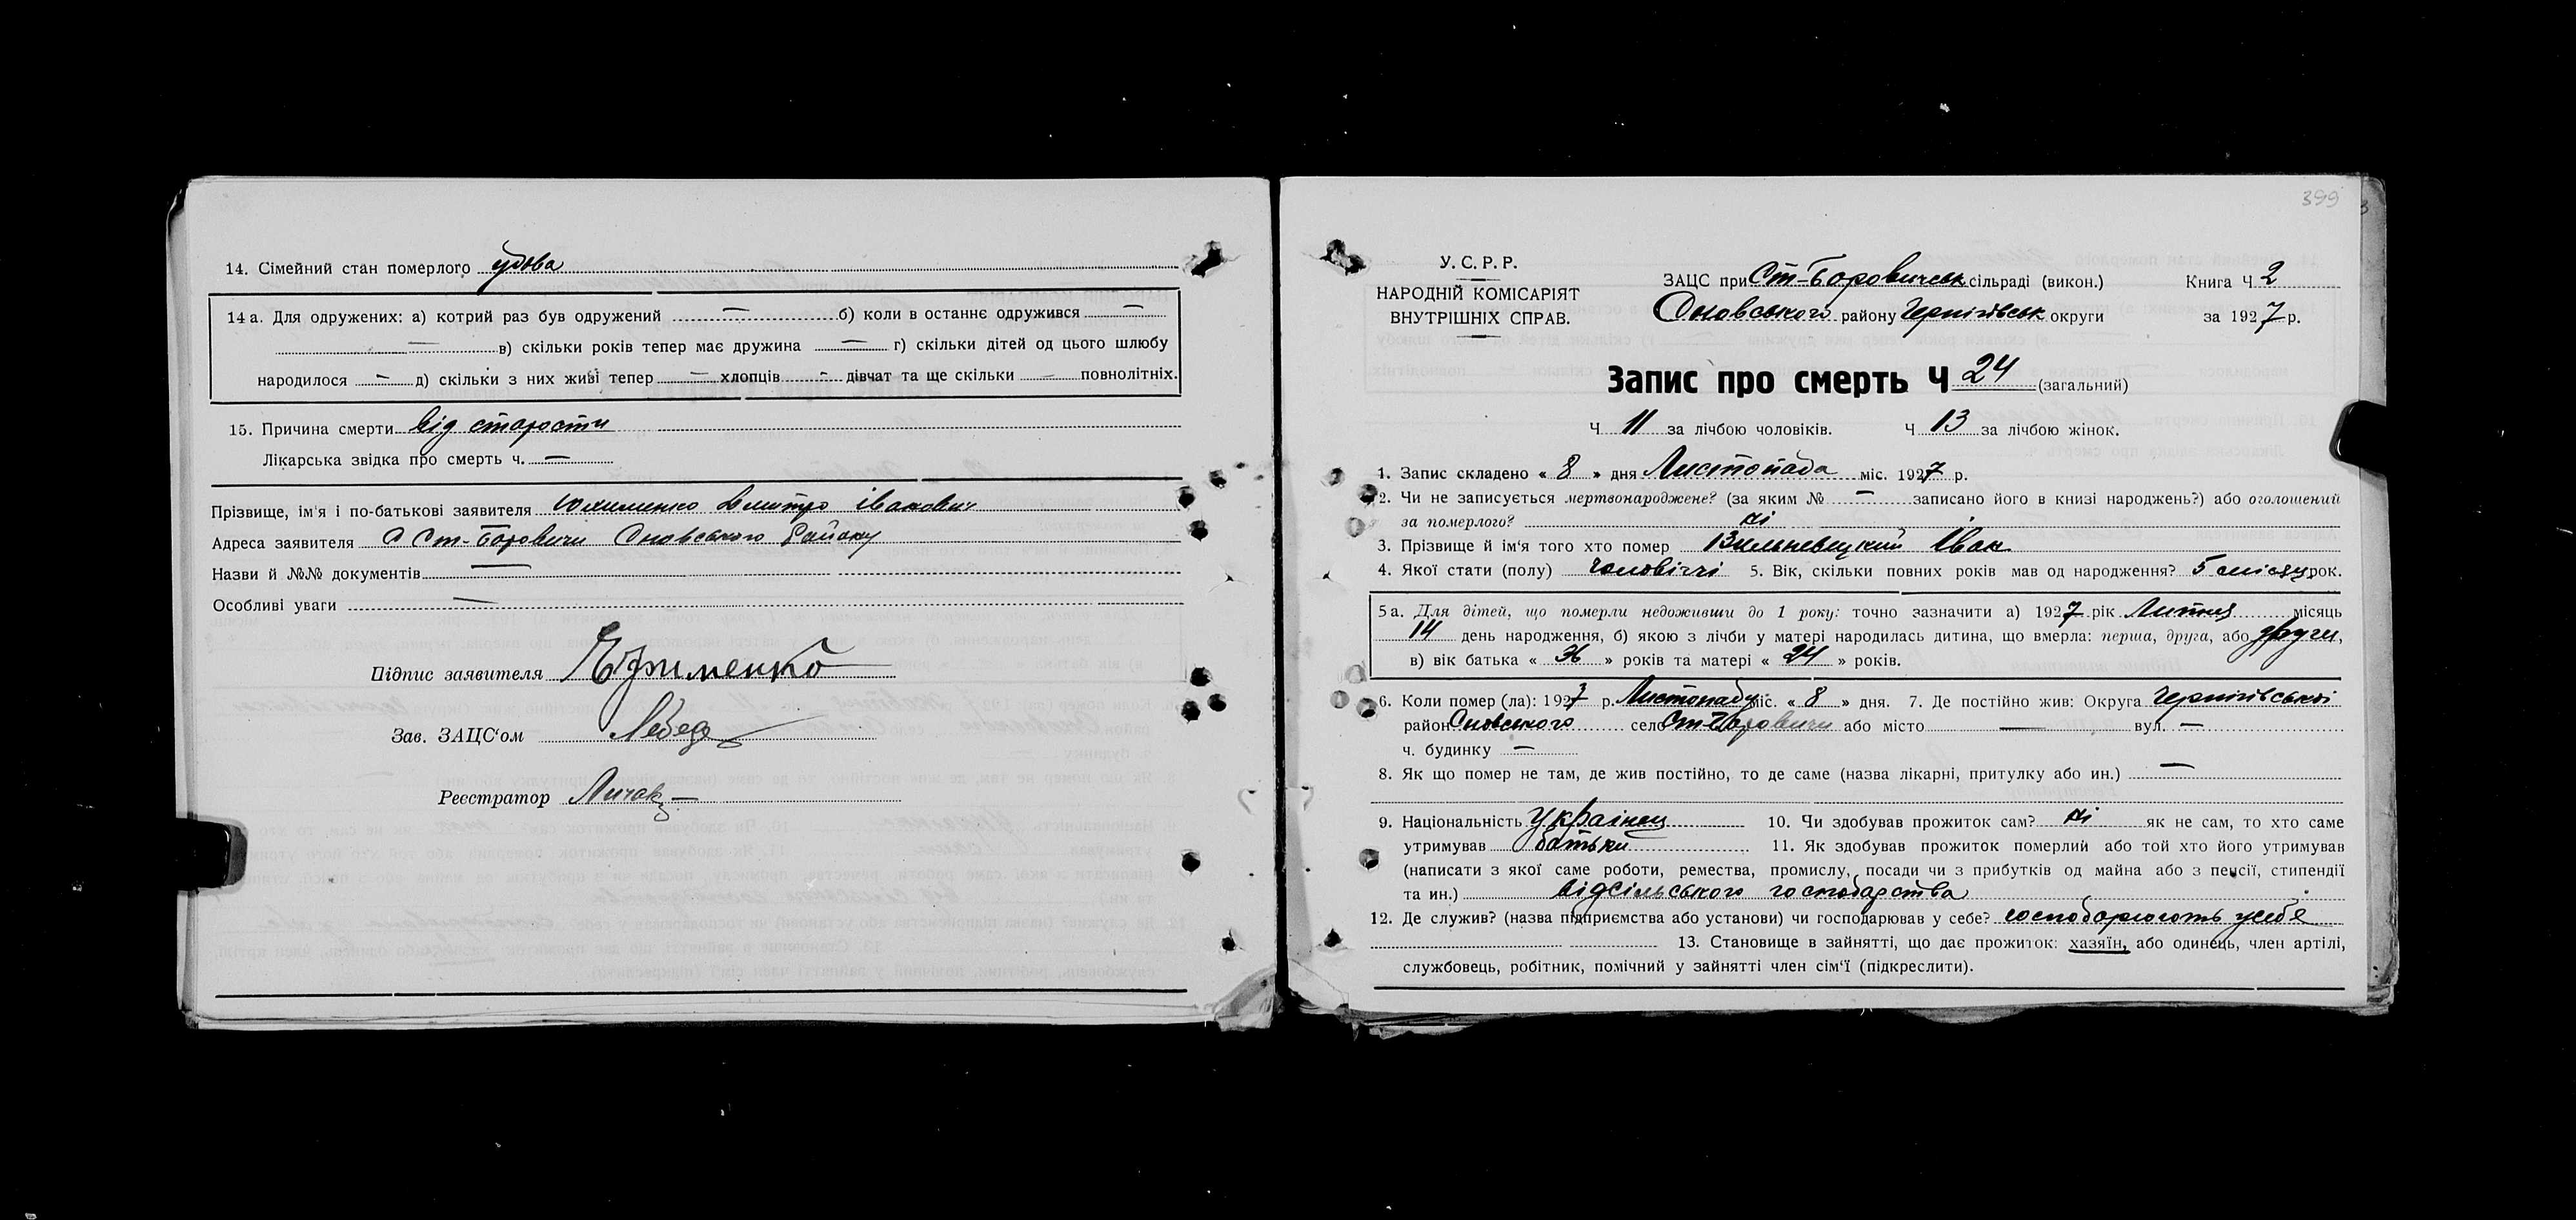 14. Сімейний стан померлого удова
14 а. Для одружених: а) котрий раз був одружений — б) коли в останнє одружився —
— в) скільки років тепер має дружина — г) скільки дітей од цього шлюбу
народилося — д) скільки з них живі тепер — хлопців - дівчат та ще скільки — повнолітніх.
15. Причина смерти від старости
Лікарська звідка про смерть ч. —
Прізвище, ім'я і по-батькові заявителя Юхименко Дмитро Іванович
Адреса заявителя С Ст-Боровичи Сновського Району
Назви й №№ документів —
Особливі уваги —
Підпис заявителя Ефименко
Зав. ЗАЦС'ом
Реєстратор
399
У. С. Р. Р.
НАРОДНІЙ КОМІСАРІЯТ
ВНУТРІШНІХ СПРАВ.
ЗАЦС при Ст-Боровичськ сільраді (викон.) Книга Ч 2
Сновського району Чернігівськ округи за 1927 р.
Запис про смерть Ч 24 (загальний)
Ч 11 за лічбою чоловіків. Ч 13 за лічбою жінок.
1. Запис складено « 8 » дня Листопада міс. 1927 р.
2. Чи не записується мертвонароджене? (за яким № — записано його в книзі народжень?) або оголошений
за померлого? ні
3. Прізвище й ім'я того хто помер Іван
4. Якої стати (полу) чоловічі 5. Вік, скільки повних років мав од народження? 5 місяц рок.
5 а. Для дітей, що померли недоживши до 1 року: точно зазначити а) 1927 рік місяць
14 день народження, б) якою з лічби у матері народилась дитина, що вмерла: перша, друга, або други,
в) вік батька « » років та матері « 24 » років.
6. Коли помер (ла): 1927 р. Листопаду міс. « 8 » дня. 7. Де постійно жив: Округа Чернігівської
район Сновського село Ст-Боровичи або місто — вул. —
ч. будинку —
8. Як що помер не там, де жив постійно, то де саме (назва лікарні, притулку або ин.) —
9. Національність Українец 10. Чи здобував прожиток сам? ні як не сам, то хто саме
утримував батьки 11. Як здобував прожиток померлий або той хто його утримував
(написати з якої саме роботи, ремества, промислу, посади чи з прибутків од майна або з пенсії, стипендії
та ин.) від сільського господарства
12. Де служив? (назва підприємства або установи) чи господарював у себе? господарюють у себе
13. Становище в зайнятті, що дає прожиток: хазяїн, або одинець, член артілі,
службовець, робітник, помічний у зайнятті член сім'ї (підкреслити).